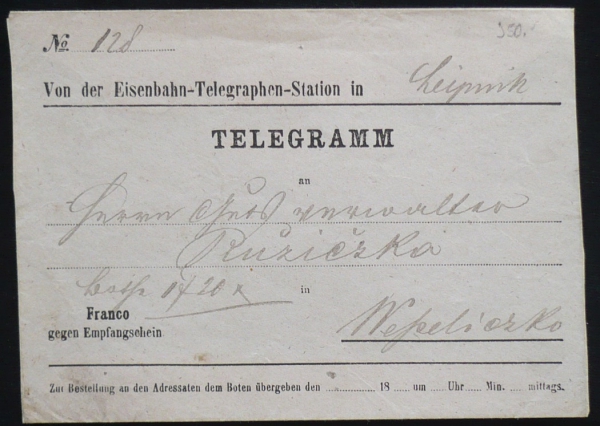 350.
No 128
Von der Eisenbahn-Telegraphen-Station in Leipnik
TELEGRAMM
an
Herrn Gutsverwalter
Ružiczka
in
Franco
gegen Empfangschein
Weseliczko
Zur Bestellung an den Adressaten dem Boten übergeben den 18 um Uhr Min. mittags.